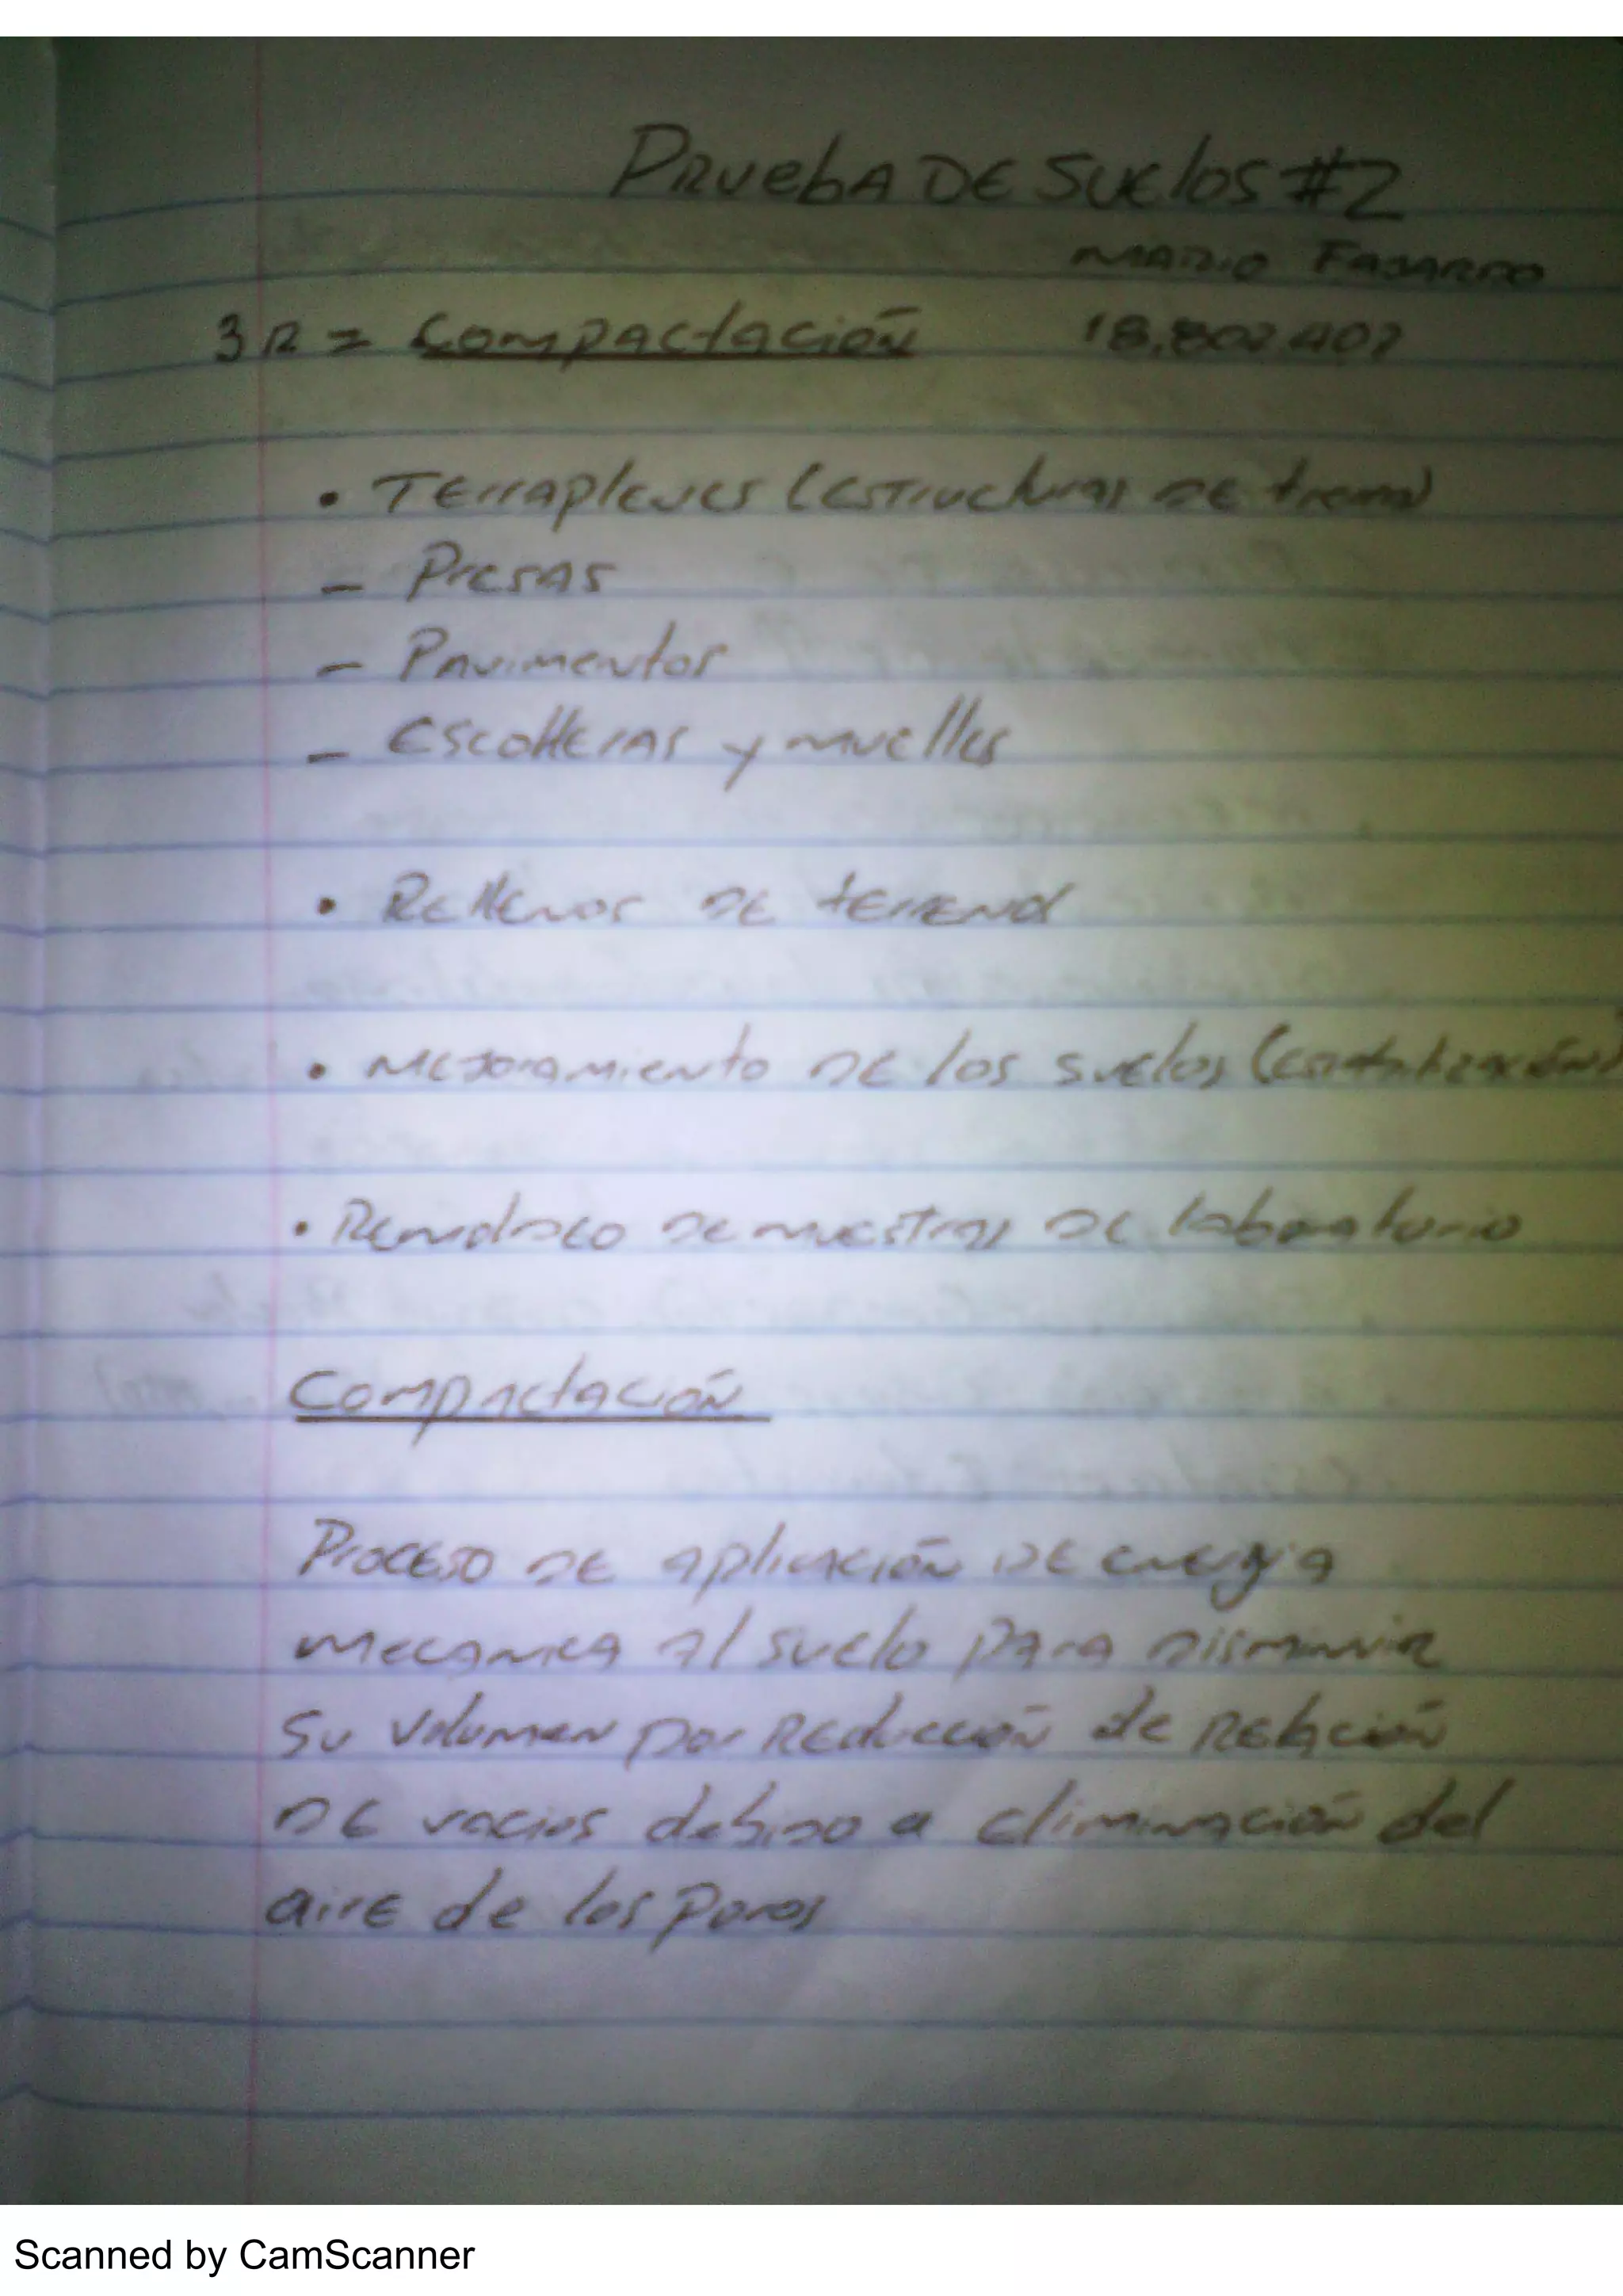 Prueba DE Suelos #2
Mario Fajardo
3R = Compactación
18.802.402
• Terraplenes (estructuras DE tierra)
- Presas
- Pavimentos
- Escolleras y muelles
• Rellenos DE terreno
• Mejoramiento DE los suelos (estabilización)
• Remoldeo de muestras de laboratorio
Compactación
Proceso DE aplicación DE energia
mecanica al suelo para disminuir
su volumen por Reducción de Relación
DE vacios debido a eliminación del
aire de los poros
Scanned by CamScanner